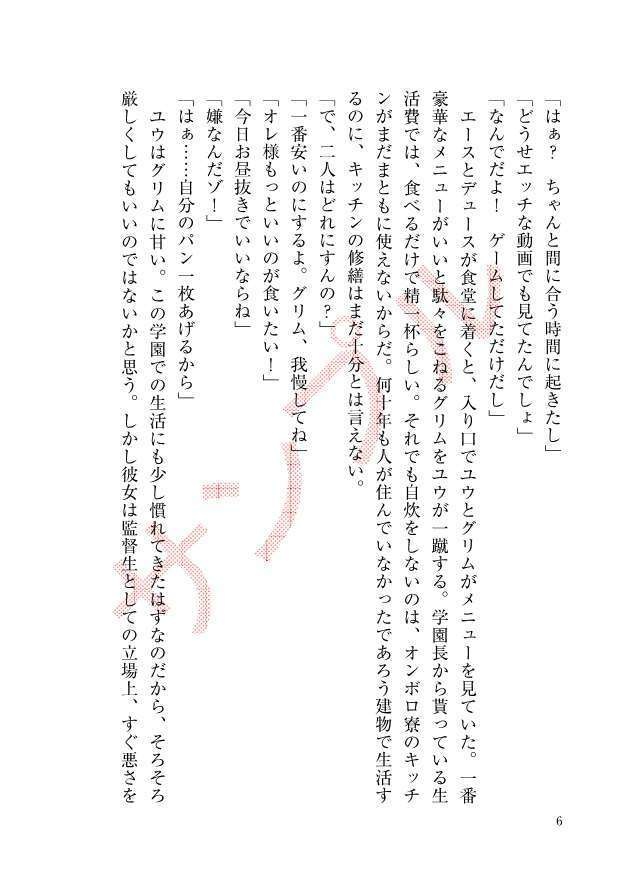 「はぁ?　ちゃんと間に合う時間に起きたし」
「どうせエッチな動画でも見てたんでしょ」
「なんでだよ!　ゲームしてただけだし」
　エースとデュースが食堂に着くと、入り口でユウとグリムがメニューを見ていた。一番
豪華なメニューがいいと駄々をこねるグリムをユウが一蹴する。学園長から貰っている生
活費では、食べるだけで精一杯らしい。それでも自炊をしないのは、オンボロ寮のキッチ
ンがまだまともに使えないからだ。何十年も人が住んでいなかったであろう建物で生活す
るのに、キッチンの修繕はまだ十分とは言えない。
「で、二人はどれにすんの?」
「一番安いのにするよ。グリム、我慢してね」
「オレ様もっといいのが食いたい!」
「今日お昼抜きでいいならね」
「嫌なんだゾ!」
「はぁ……自分のパン一枚あげるから」
　ユウはグリムに甘い。この学園での生活にも少し慣れてきたはずなのだから、そろそろ
厳しくしてもいいのではないかと思う。しかし彼女は監督生としての立場上、すぐ悪さを
サンプル
6